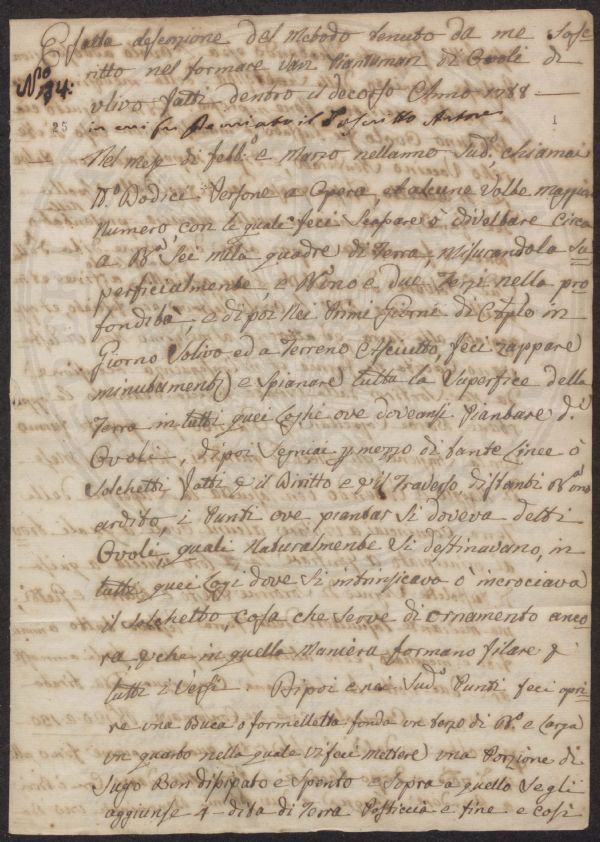 Esatta descrizione del Metodo tenuto da me Sosc
ritto nel formare varj Piantumari di Ovoli di
N.º 34:
vlivo fatti dentro il decorso Anno 1788 —
25 1
in cui fu Premiato il Soscritto Autore
Nel mese di febb.º e Marzo nell'anno Sud.º, chiamai
N.º Dodici Persone a Opera, et alcune volte maggior
Numero, con le quale feci Scapare ò divelbare circa
a B.ª Sei mila quadre di Terra, Misurandola Su
perficialmente, e B.ª uno e due Terzi nella pro
fondità, e dipoi Nei Primi Giorni di Aprle in
Giorno Solivo ed a Terreno Asciutto, feci zappare
minutamente e Spianare tutta la Superfice della
Terra in tutti quei Loghi ove doveansi Piantare d.i
Ovoli, dipoi Segniai p mezzo di tante Linee ò
Solchetti fatti p il Diritto e p il Traverso distanti B.ª uno
ardito, i Punti ove piantar Si doveva detti
Ovoli, quali Naturalmente Si destinavano, in
tutti quei Logi dove Si intrinsicava ò incrociava
il Solchetto, cosa che Serve di ornamento anco
ra, p che in quella Maniera formano filare p
tutti i versi. Dipoi e nei Sud.i Punti feci apri
re una Buca o formelletta fonda un terzo di B.ª e Larga
un quarto nella quale vi feci mettere una Porzione di
Sugo Ben disipato e Spento e Sopra a quello Segli
aggiunse 4 dita di Terra Posticcia e fine e così